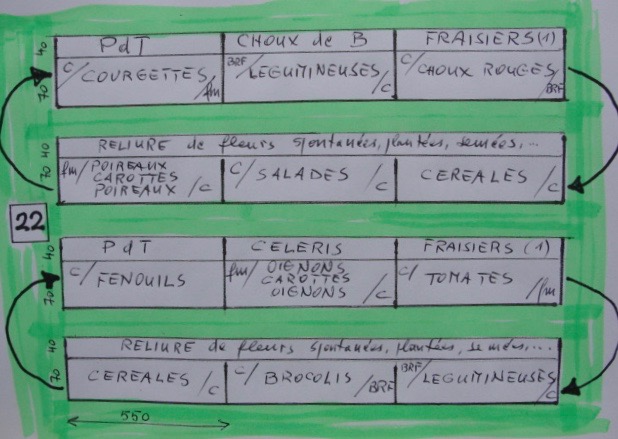 40 PdT CHOUX de B FRAISIERS (1)
70 C/ COURGETTES /fm BRF/ LEGUMINEUSES /C C/ CHOUX ROUGES /BRF
40 RELIURE de fleurs spontanées, plantées, semées,...
70 fm/ POIREAUX CAROTTES POIREAUX /C C/ SALADES /C CEREALES /C
22
40 PdT CELERIS FRAISIERS (1)
70 C/ FENOUILS fm/ OIGNONS CAROTTES OIGNONS /C C/ TOMATES /fm
40 RELIURE de fleurs spontanées, plantées, semées,...
70 CEREALES /C C/ BROCOLIS /BRF BRF/ LEGUMINEUSES /C
550